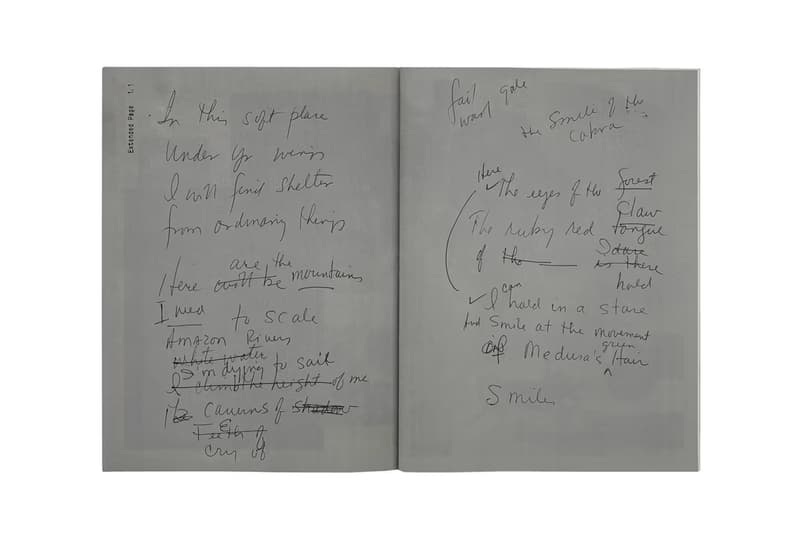 Extended Page 1.1
In this soft place
Under yr wings
I will find shelter
from ordinary things
are the
Here will be mountains
I need to scale
Amazon Rivers
white water
I'm dying to sail
I climb the height of me
Caverns of shadow
Teeth of
cry of
fail gale
wand
the Smile of the
Cobra
Here
The eyes of the forest
Claw
The ruby red tongue
of the I dare
is there
hold
can
I hold in a stare
And Smile at the movement
green
of Medusa's Hair
Smiles